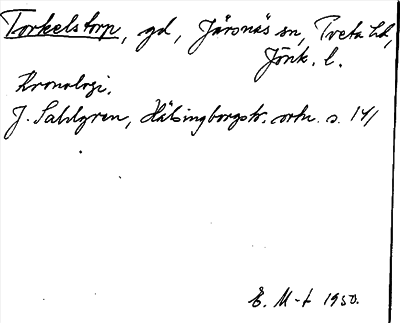 Torkelstorp, gd, Järsnäs sn, Tveta hd,
Jönk. l.
Kronologi.
J. Sahlgren, Hälsingborgstr. ortn. s. 141
E. M-t 1950.